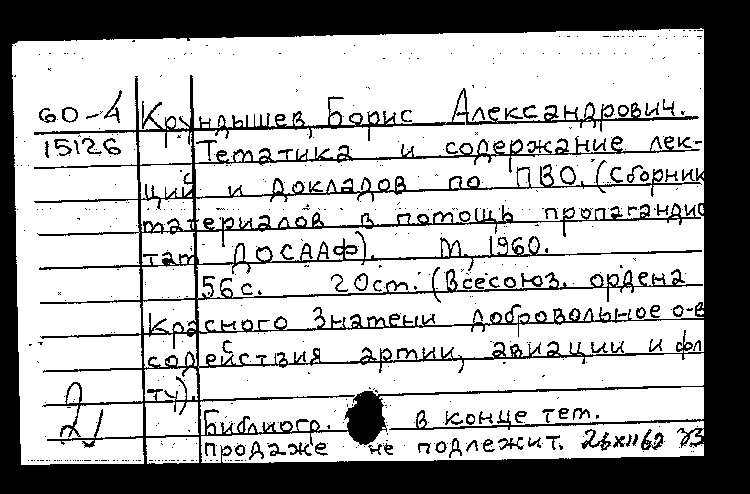 60-4 Крундышев, Борис Александрович.
15126 Тематика и содержание лек-
ций и докладов по ПВО. (Сборник
материалов в помощь пропагандис
там ДОСААФ). М, 1960.
56с. 20ст. (Всесоюз. ордена
Красного Знамени добровольное о-в
содействия армии, авиации и фл
ту).
2
Библиогр. в конце тем.
продаже не подлежит.